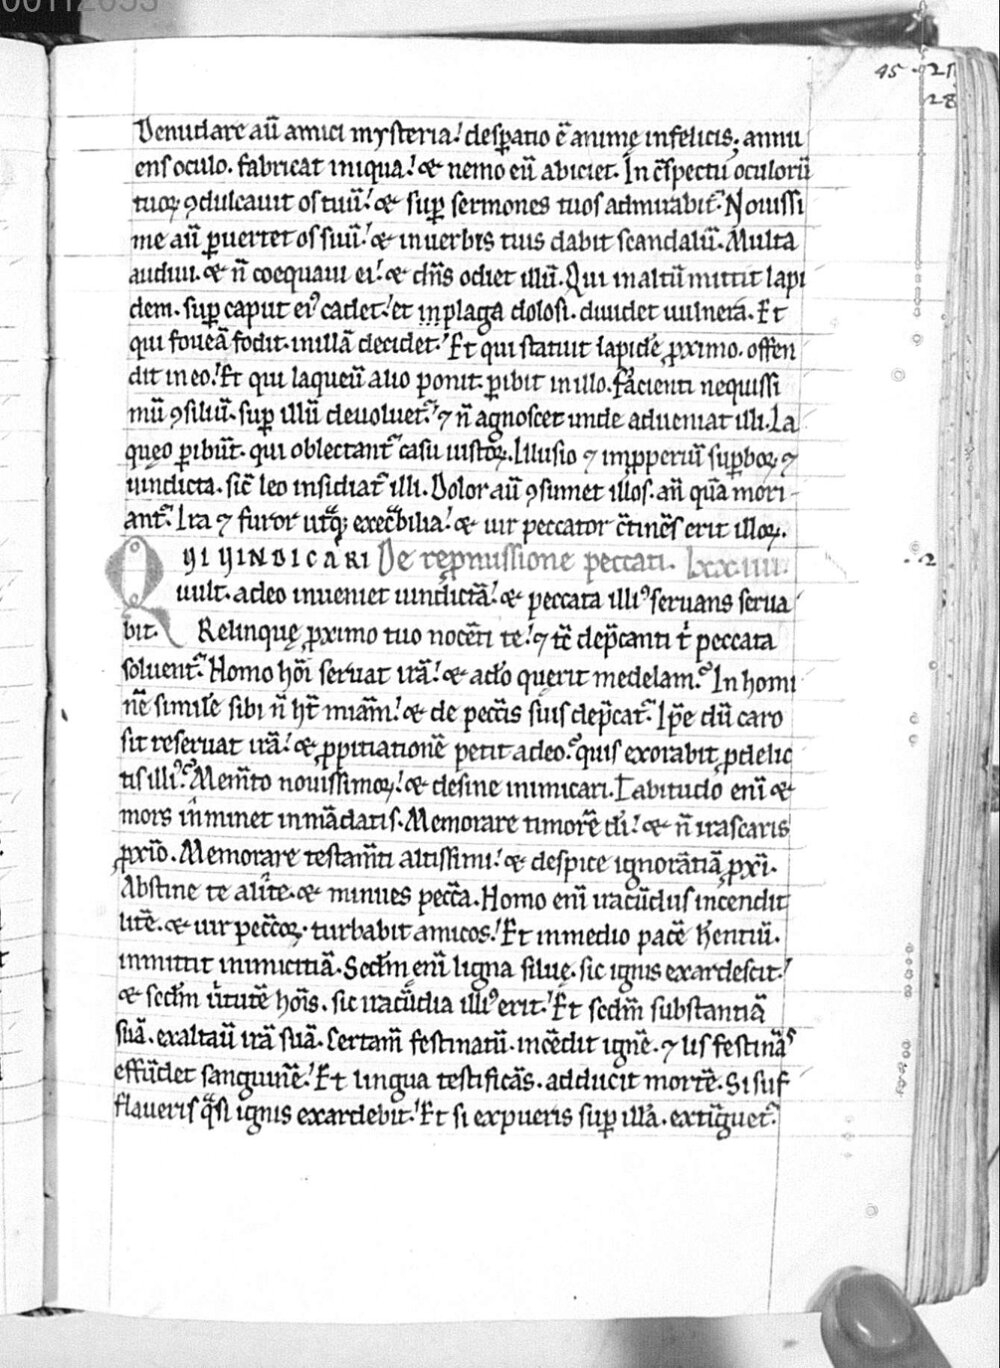 00112653
45 · 21
28
Denudare aū amici mysteria! desꝑatio ē animę infelicis; annu
ens oculo. fabricat iniqua! & nemo eū abiciet. In c̄spectu oculorū
tuoꝝ ꝯdulcauit os tuū! & suꝑ sermones tuos admirabit᷑. Nouissi
me aū ꝑuertet os suū! & in uerbis tuis dabit scandalū. Multa
audiui. & n̄ coequaui ei! & dn̄s odiet illū. Qui in altū mittit lapi
dem. suꝑ caput eiꝰ cadet! et in plaga dolosi. diuidet uulnera. Et
qui foueā fodit. in illā decidet! Et qui statuit lapidē ꝓximo. offen
dit in eo! Et qui laqueū alio ponit. ꝑibit in illo. Facienti nequissi
mū ꝯsiliū. suꝑ illū deuoluet᷑! ⁊ n̄ agnoscet unde adueniat illi. La
queo ꝑibūt. qui oblectant᷑ casu iustoꝝ. Illusio ⁊ imꝓperiū suꝑboꝝ ⁊
uindicta. sic̄ leo insidiat᷑ illi. Dolor aū ꝯsumet illos. an̄ quā mori-
ant᷑. Ira ⁊ furor utͣqꝫ execͣbilia! & uir peccator c̄tinēs erit illoꝝ.
QUI UINDICARI De rep̄missione peccati. lxxiiii.
. 2
uult. a deo inueniet uindictā! & peccata illiꝰ seruans serua
bit. Relinque ꝓximo tuo nocēti te! ⁊ tc̄ dep̄canti t̄ peccata
soluent᷑. Homo hōi seruat irā! & a dō querit medelam. In homi
nē similē sibi n̄ ht̄ miām! & de pecc̄is suis dep̄cat᷑. Ip̄e dū caro
sit reseruat irā! & ꝓpitiationē petit a deo. quis exorabit ꝓ delic
tis illiꝰ. Mem̄to nouissimoꝝ! & desine inimicari. Tabitudo eni & 
mors inminet in mādatis. Memorare timorē dī! & n̄ irascaris
ꝓxīo. Memorare testam̄ti altissimi! & despice ignorātiā ꝓxī.
Abstine te a lite. & minues pecc̄a. Homo enī iracūdus incendit
litē. & uir pecc̄oꝝ. turbabit amicos! Et in medio pacē hn̄tiū.
inmittit inimicitiā. Secdm̄ enī ligna siluę. sic ignis exardescit!
& secdm̄ ūtutē hoīs. sic iracūdia illiꝰ erit! Et secdm̄ substantiā
suā. exaltaū irā suā. Certam̄ festinatū. incēdit ignē. ⁊ lis festināˢ
effūdet sanguinē! Et lingua testificās. adducit mortē. Si suf
flaueris qͣsi ignis exardebit! Et si expueris suꝑ illā. extīguet᷑.